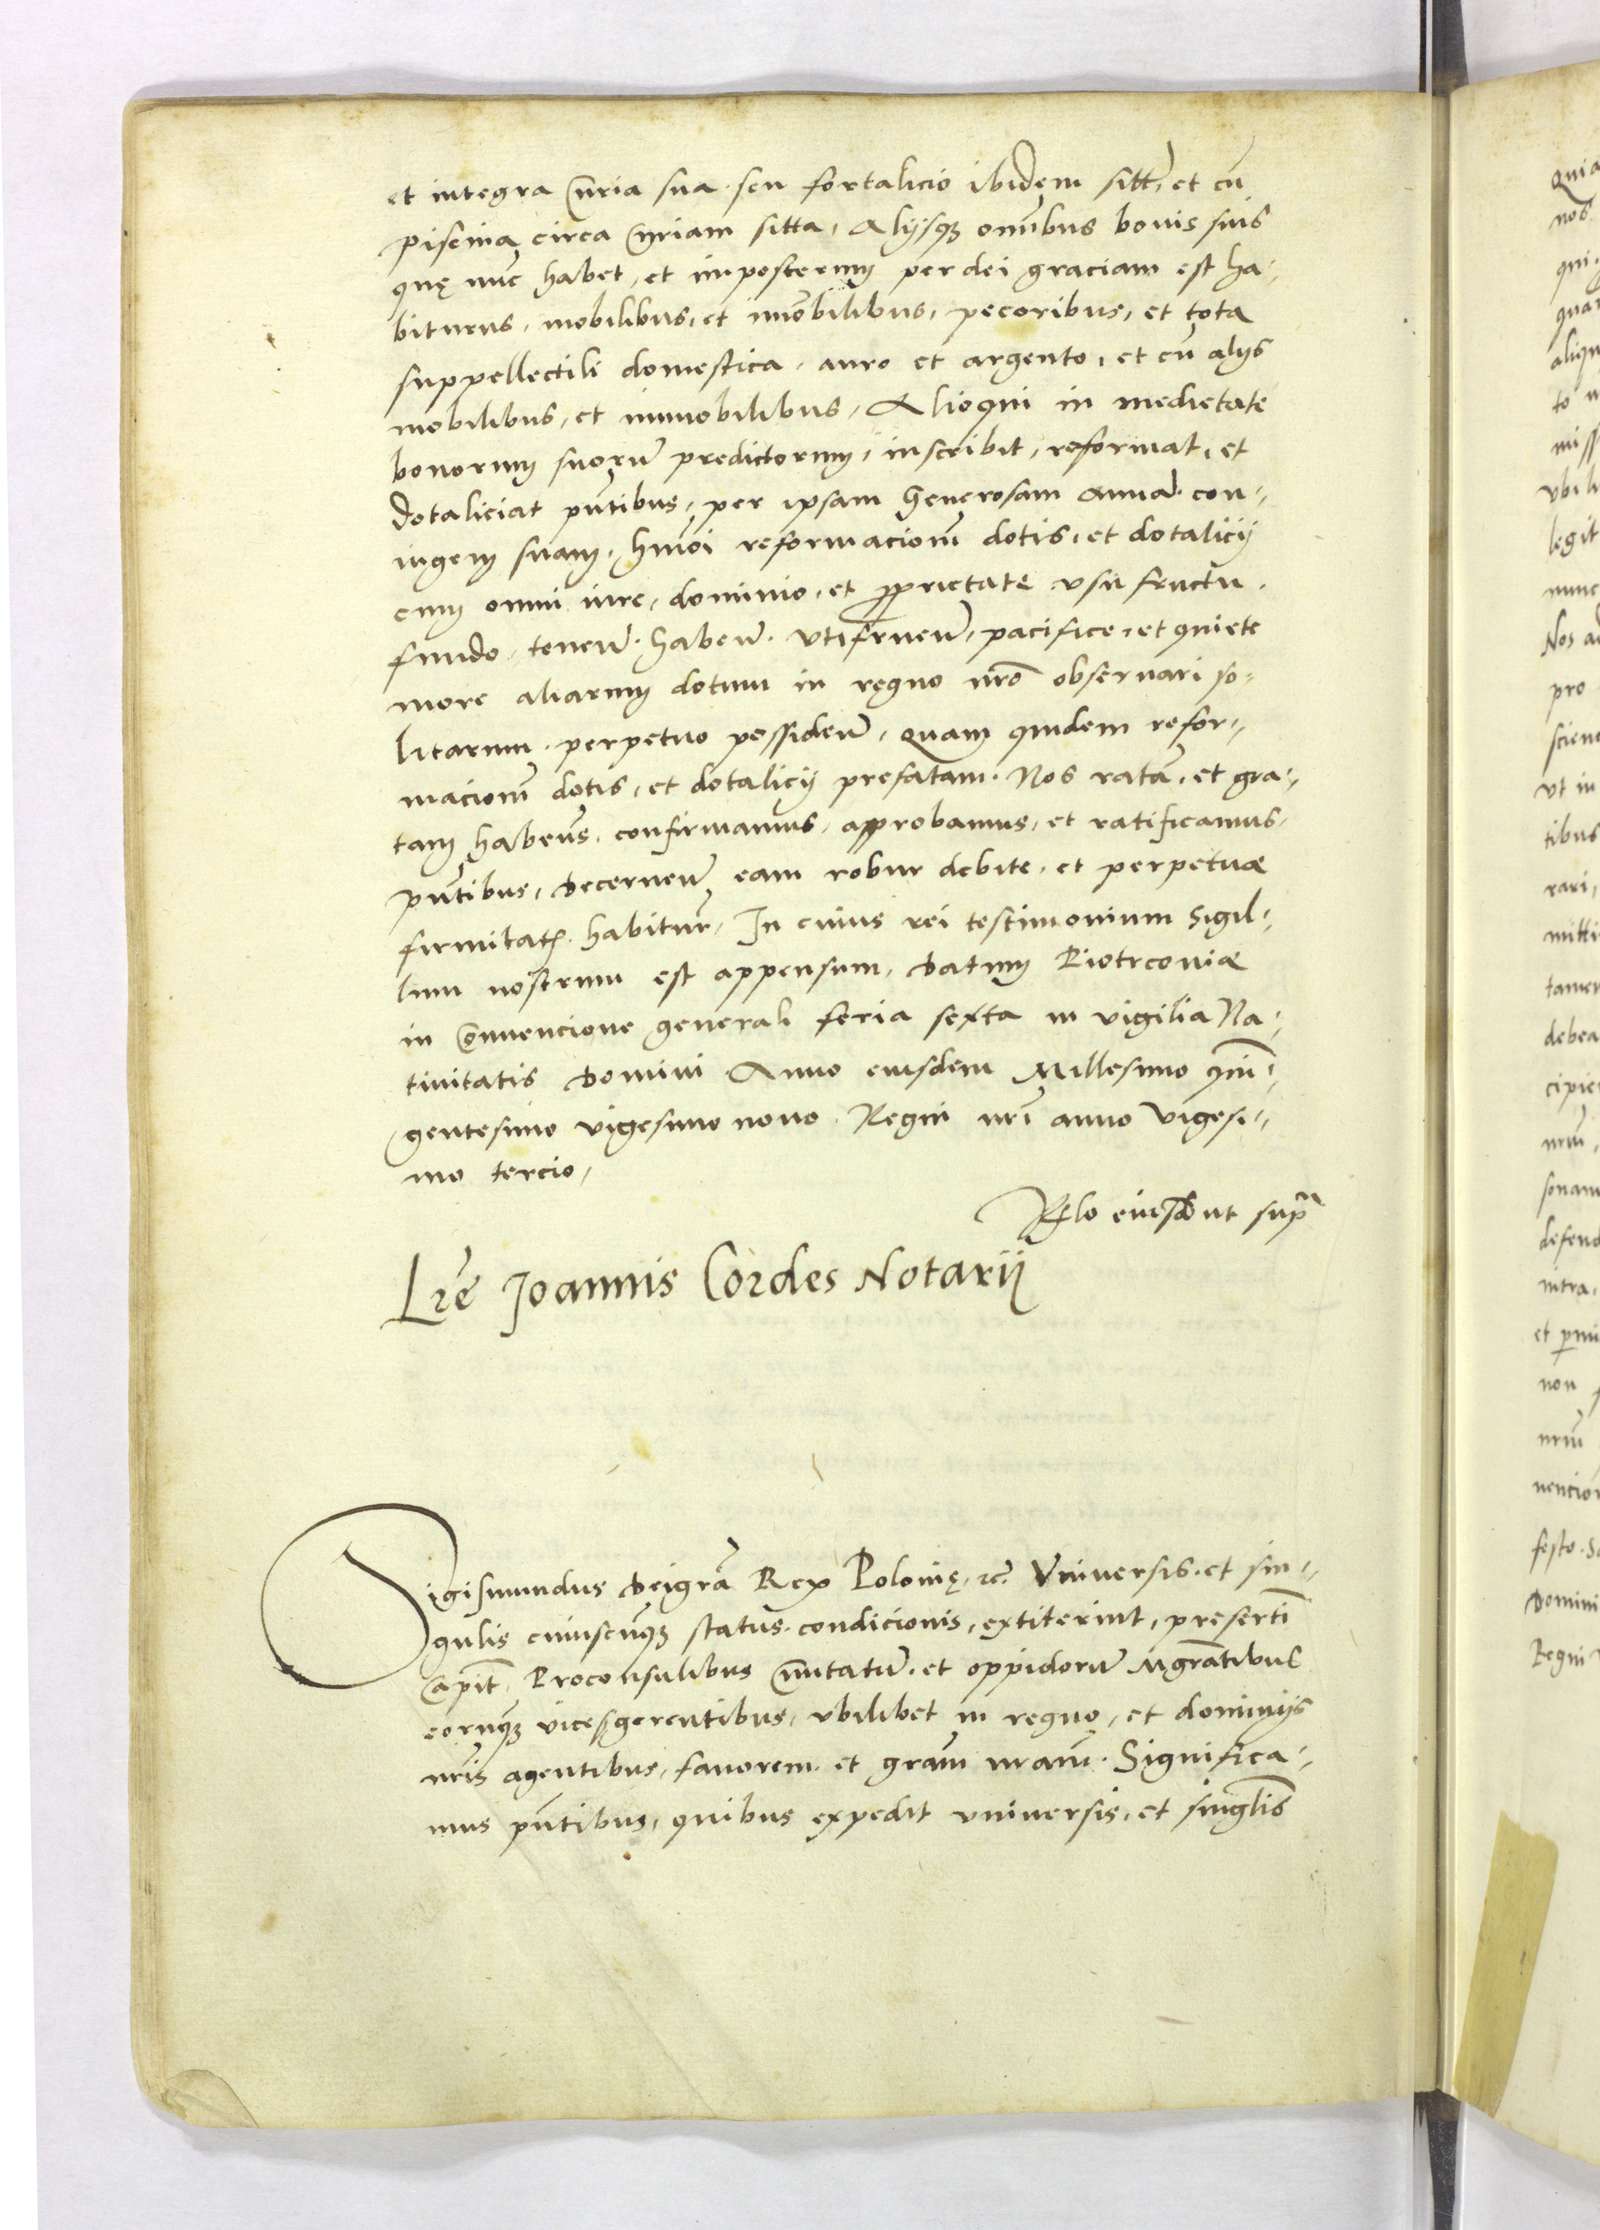 et integra Curia sua seu fortalicio ibidem sitt, et cū
piscina circa Curiam sitta, Alijsqȝ omībus bonis suis
quę nūc habet, et imposterum per dei graciam est ha-
biturus, mobilibus, et imobilibus, pecoribus, et tota
suppellectili domestica, auro et argento, et cū alijs
mobilibus, et immobilibus, Alioqui in medietate
bonorum suorū predictorum, inscribit, reformat, et
dotaliciat pñtibus, per ipsam Generosam Annā con-
iugem suam, hmōi reformacionē dotis, et dotalicij
cum omni iure, dominio, et proprietate vsu fructu
fundo, tenenđ habenđ vtifruenđ, pacifice, et quiete
more aliarum dotum in regno nrō obseruari so-
litarum perpetuo possidenđ, Quam quidem refor-
macionē dotis, et dotalicij prefatam Nos ratā, et gra-
tam habentes confirmamus, approbamus, et ratificamus
pñtibus, Decernenđ eam robur debite, et perpetuæ
firmitatis habiturā, In cuius rei testimonium Sigil-
lum nostrum est appensum, Datum Piotrcouiæ
in Conuencione generali feria sexta in vigilia Na-
tiuitatis Domini Anno eiusdem Millesimo quin-
gentesimo vigesimo nono Regni nrī anno vigesi-
mo tercio,
Rlo eiusdē ut supra
Lrē Joannis Cordes Notarij
Sigismundus Dei grā Rex Polonię, ꝛc̄. Vniuersis et sin-
gulis cuiuscunqȝ status condicionis, extiterint, presertī
Capit. Proconsulibus Ciuitatū et oppidorū Mgrātibus
eorumqȝ vicesgerentibus, vbilibet in regno, et dominijs
nrīs agentibus, fauorem et grām nrām Significa-
mus pñtibus, quibus expedit vniuersis, et singlis